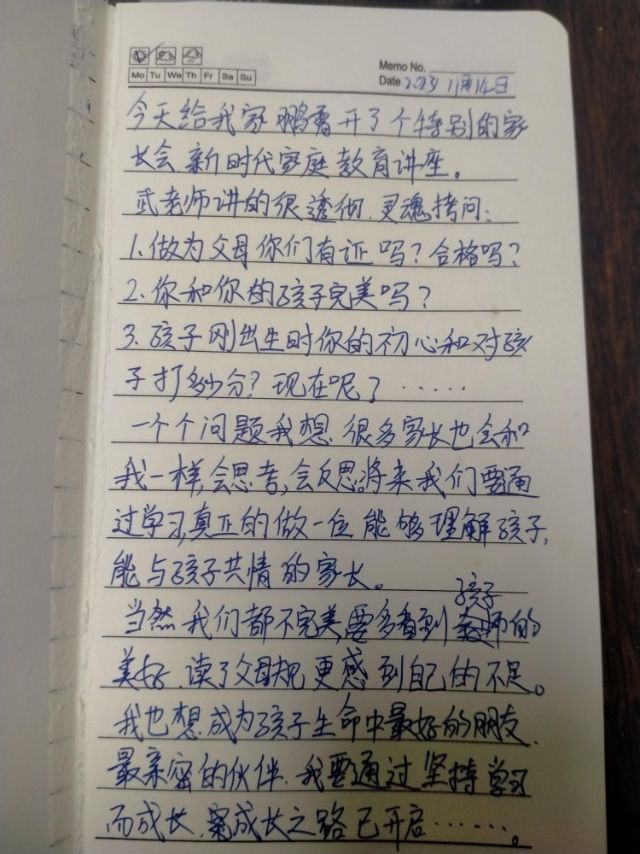 Memo No.
Mo Tu We Th Fr Sa Su
Date 2023 11月14日
今天给我家鹏飞开了个特别的家
长会.新时代家庭教育讲座。
武老师讲的很透彻.灵魂拷问:
1.做为父母你们有证吗?合格吗?
2.你和你的孩子完美吗?
3.孩子刚出生时你的初心和对孩
子打多少分?现在呢?······
一个个问题我想.很多家长也会和
我一样,会思考,会反思.将来我们要通
过学习,真正的做一位能够理解孩子,
能与孩子共情的家长。
孩子
当然我们都不完美要多看到的
美好.读了父母规更感到自己的不足。
我也想成为孩子生命中最好的朋友.
最亲密的伙伴.我要通过坚持学习
而成长.成长之路已开启······。